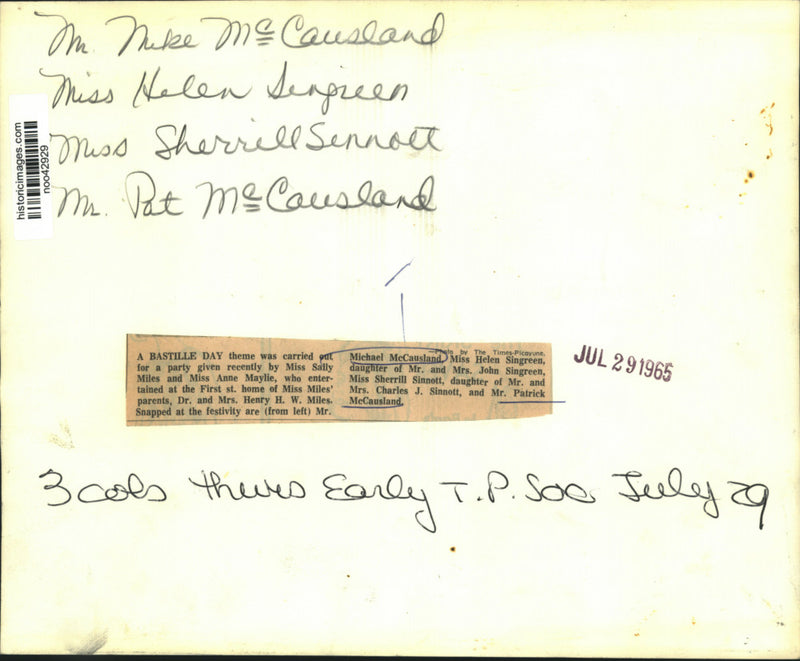 Mr. Mike McCausland
Miss Helen Sengreen
Miss Sherrill Sennott
Mr. Pat McCausland
historicimages.com
noo42929
Photo by The Times-Picayune.
A BASTILLE DAY theme was carried out
for a party given recently by Miss Sally
Miles and Miss Anne Maylie, who enter-
tained at the First st. home of Miss Miles'
parents, Dr. and Mrs. Henry H. W. Miles.
Snapped at the festivity are (from left) Mr.
Michael McCausland, Miss Helen Singreen,
daughter of Mr. and Mrs. John Singreen,
Miss Sherrill Sinnott, daughter of Mr. and
Mrs. Charles J. Sinnott, and Mr. Patrick
McCausland.
JUL 29 1965
3 cols thurs Early T.P. Soc July 29